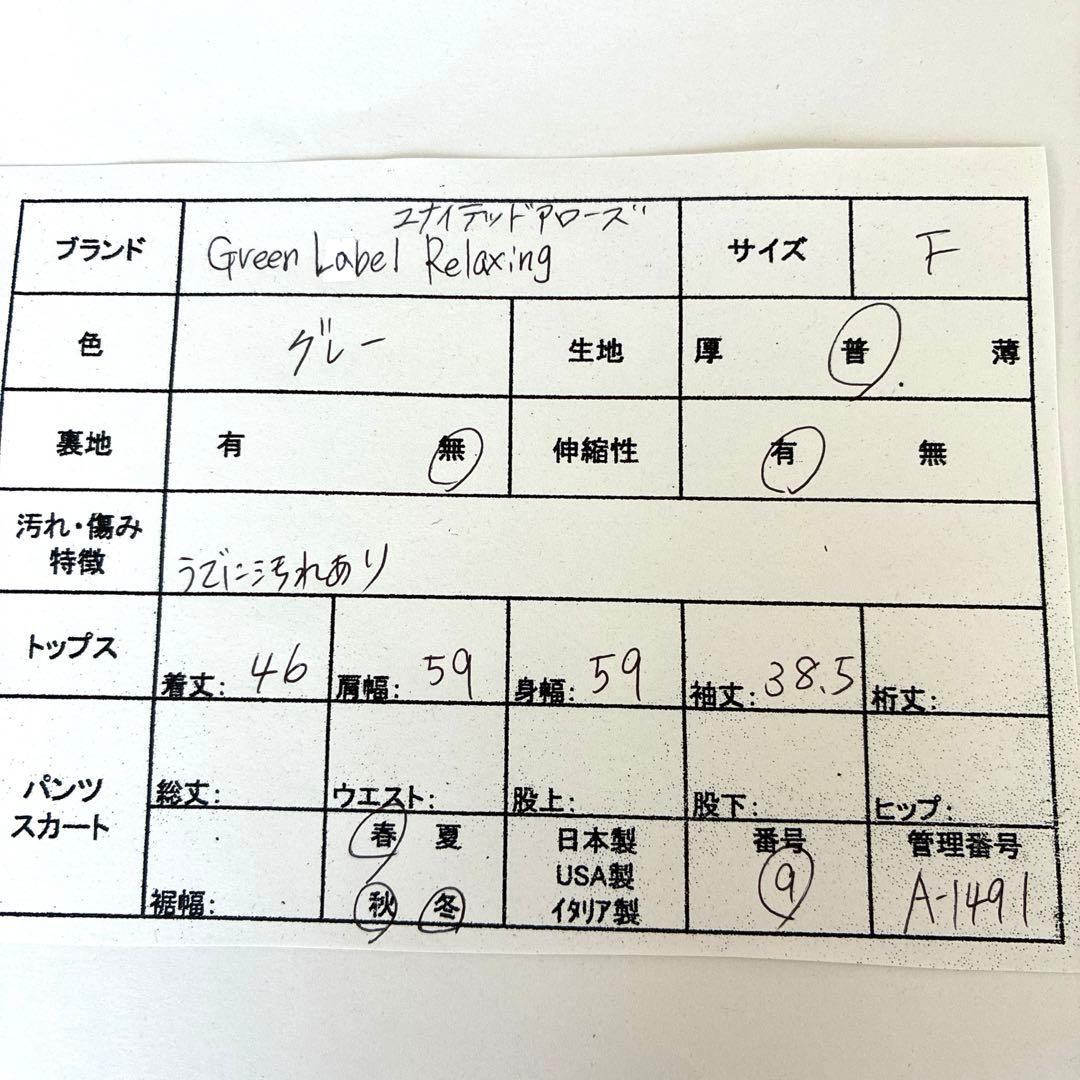 ブランド ユナイテッドアローズ サイズ F
Green Label Relaxing
色 グレー 生地 厚 普 薄
裏地 有 無 伸縮性 有 無
汚れ・傷み
特徴 うでに汚れあり
トップス 着丈: 46 肩幅: 59 身幅: 59 袖丈: 38.5 裄丈:
パンツ
スカート
総丈: ウエスト: 股上: 股下: ヒップ:
裾幅:
春 夏
秋 冬
日本製
USA製
イタリア製
番号
9
管理番号
A-1491